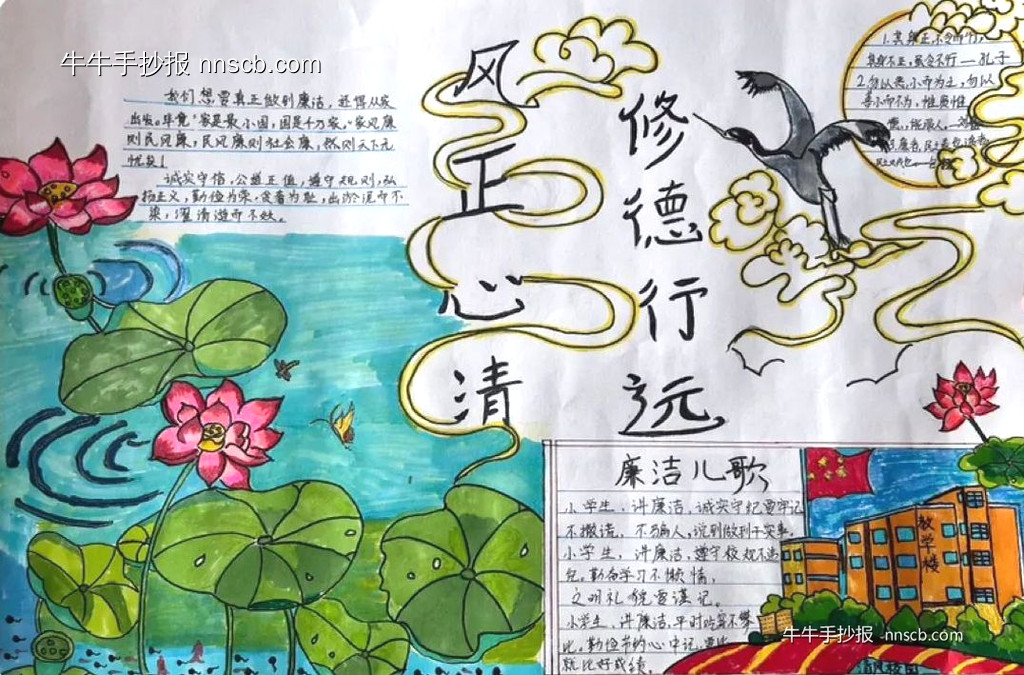 牛牛手抄报 nnscb.com
我们想要真正做到廉洁,还得从家
出发。毕竟"家是最小国,国是千万家,"家风廉
则民风廉,民风廉则社会廉,然则天下无
忧矣!
诚实守信,公益正值,遵守规则,弘
扬正义,勤俭为荣,贪奢为耻,出淤泥而不
染,濯清涟而不妖。
风正心清
修德行远
1.其身正,不令而行,
其身不正,虽令不行——孔子
2.勿以恶小而为之,勿以
善小而不为,惟贤惟
廉洁儿歌
小学生,讲廉洁,诚实守纪要牢记
不撒谎,不骗人,说到做到干实事。
小学生,讲廉洁,遵守校规不违
纪,勤奋学习不懒惰,
文明礼貌要谨记。
小学生,讲廉洁,平时吃穿不攀
比,勤俭节约心中记,
就比好成绩。
教学楼
牛牛手抄报 nnscb.com